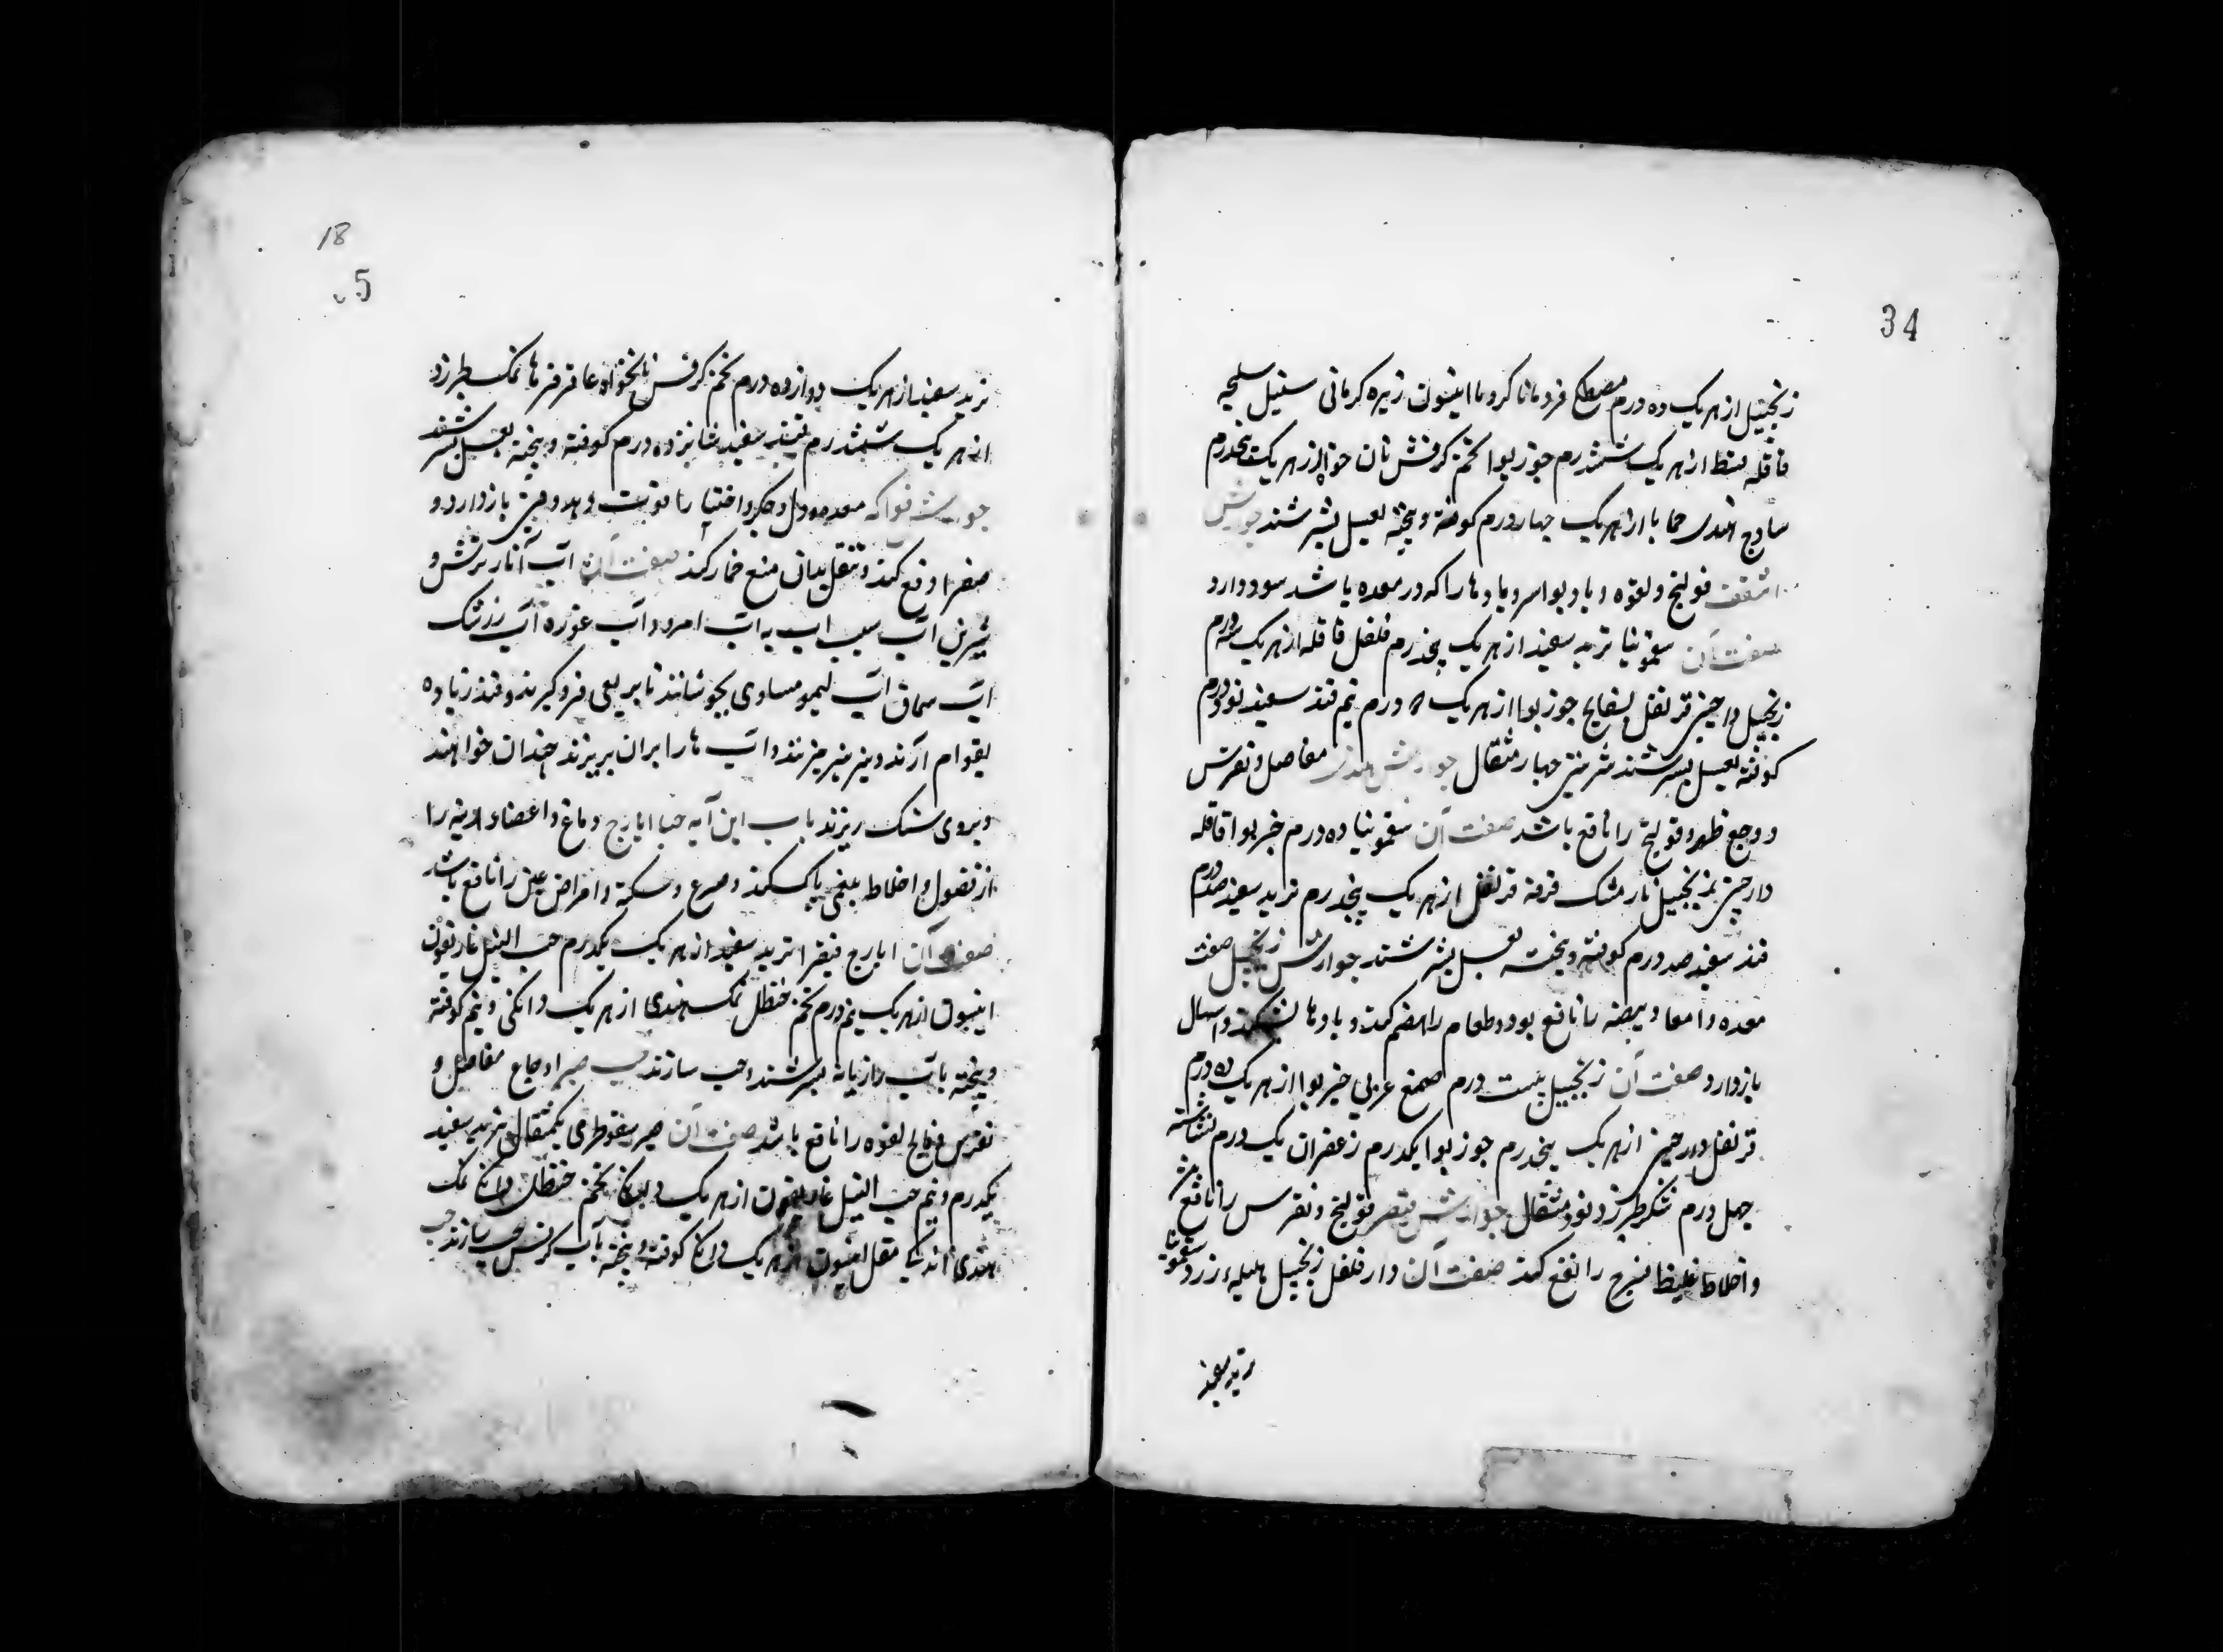 34
زنجبیل از هر یک ده درم مصطکی قردمانا کرویا انیسون زیره کرمانی سنبل سلیخه
قاقله از هر یک ششدرم جوزبوا تخم کرفش نان خواه از هر یک پنجدرم
سادج هندی حماما از هر یک چهار درم کوفته و بیخته بعسل بسرشند جوارش
قولنج و لقوه و باد بواسر و بادها را که در معده باشد سود دارد
صفت آن سقمونیا تربد سفید از هر یک پنجدرم فلفل قاقله از هر یک سه درم
زنجبیل دارچینی قرنفل بسفایج جوزبوا از هر یک درم نیم قند سفید نود درم
کوفته بعسل بسرشند شربتی چهار مثقال جوارش هندی مفاصل و نقرس
و وجع ظهر و قولنج را نافع باشد صفت آن سقمونیا ده درم خیربوا قاقله
دارچینی زنجبیل نارمشک قرفه قرنفل از هر یک پنجدرم تربد سفید صد درم
قند سفید صد درم کوفته و بیخته بعسل بسرشند جوارش زنجبیل صفت
معده و امعا و بیضه را نافع بود و طعام را هضم کند و بادها بشکند و اسهال
بازدارد صفت آن زنجبیل بیست درم صمغ عربی خیربوا از هر یک ده درم
قرنفل دارچینی از هر یک پنجدرم جوزبوا یکدرم زعفران یک درم نشاسته
چهل درم شکر طبرزد نود مثقال جوارش قیصر قولنج و نقرس را نافع باشد
و اخلاط غلیظ لزج را نفع کند صفت آن دارفلفل زنجبیل هلیله زرد سقمونیا
تربد سفید
18
5
تربد سفید از هر یک دوازده درم تخم کرفس نانخواه عاقرقرحا نمک طبرزد
از هر یک ششدرم قند سفید شانزده درم کوفته و بیخته بعسل بسرشند
جوارش فواکه معده و دل و جکر و احشا را قوت دهد و قی بازدارد و
صفرا دفع کند و تنقل بدان منع خمار کند صفت آن آب انار ترش و
شیرین آب سیب آب به آب امرود آب غوره آب زرشک
آب سماق آب لیمو مساوی بجوشانند تا بربعی فروکیرند و قند زیاده
بقوام آرند و نیز نیز میزنند و آب ها را بران بریزند چندان خواهند
و بروی سنک ریزند باب این آیه حب ایارج دماغ و اعضاء را
از فضول و اخلاط بلغمی پاک کند و صرع و سکته و امراض عین را نافع باشد
صفت آن ایارج فیقرا تربد سفید از هر یک یکدرم حب النیل غاریقون
انیسون از هر یک نیم درم تخم حنظل نمک هندی از هر یک دانکی و نیم کوفته
و بیخته بآب رازیانه بسرشند و حب سازند حب صبر اوجاع مفاصل و
نقرس و فالج لقوه را نافع باشد صفت آن صبر سقوطری یکمثقال تربد سفید
یکدرم و نیم حب النیل غاریقون از هر یک دانکی تخم حنظل دانکی نمک
هندی مقل انیسون از هر یک دانکی کوفته و بیخته بآب کرفس حب سازند حب